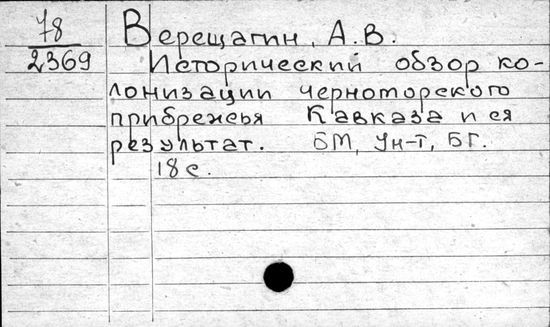 78
2369
Верещагин, А.В.
Исторический обзор ко-
лонизации черноморского
прибрежья Кавказа и ея
результат. БМ, Ун-т, БГ.
18 с.